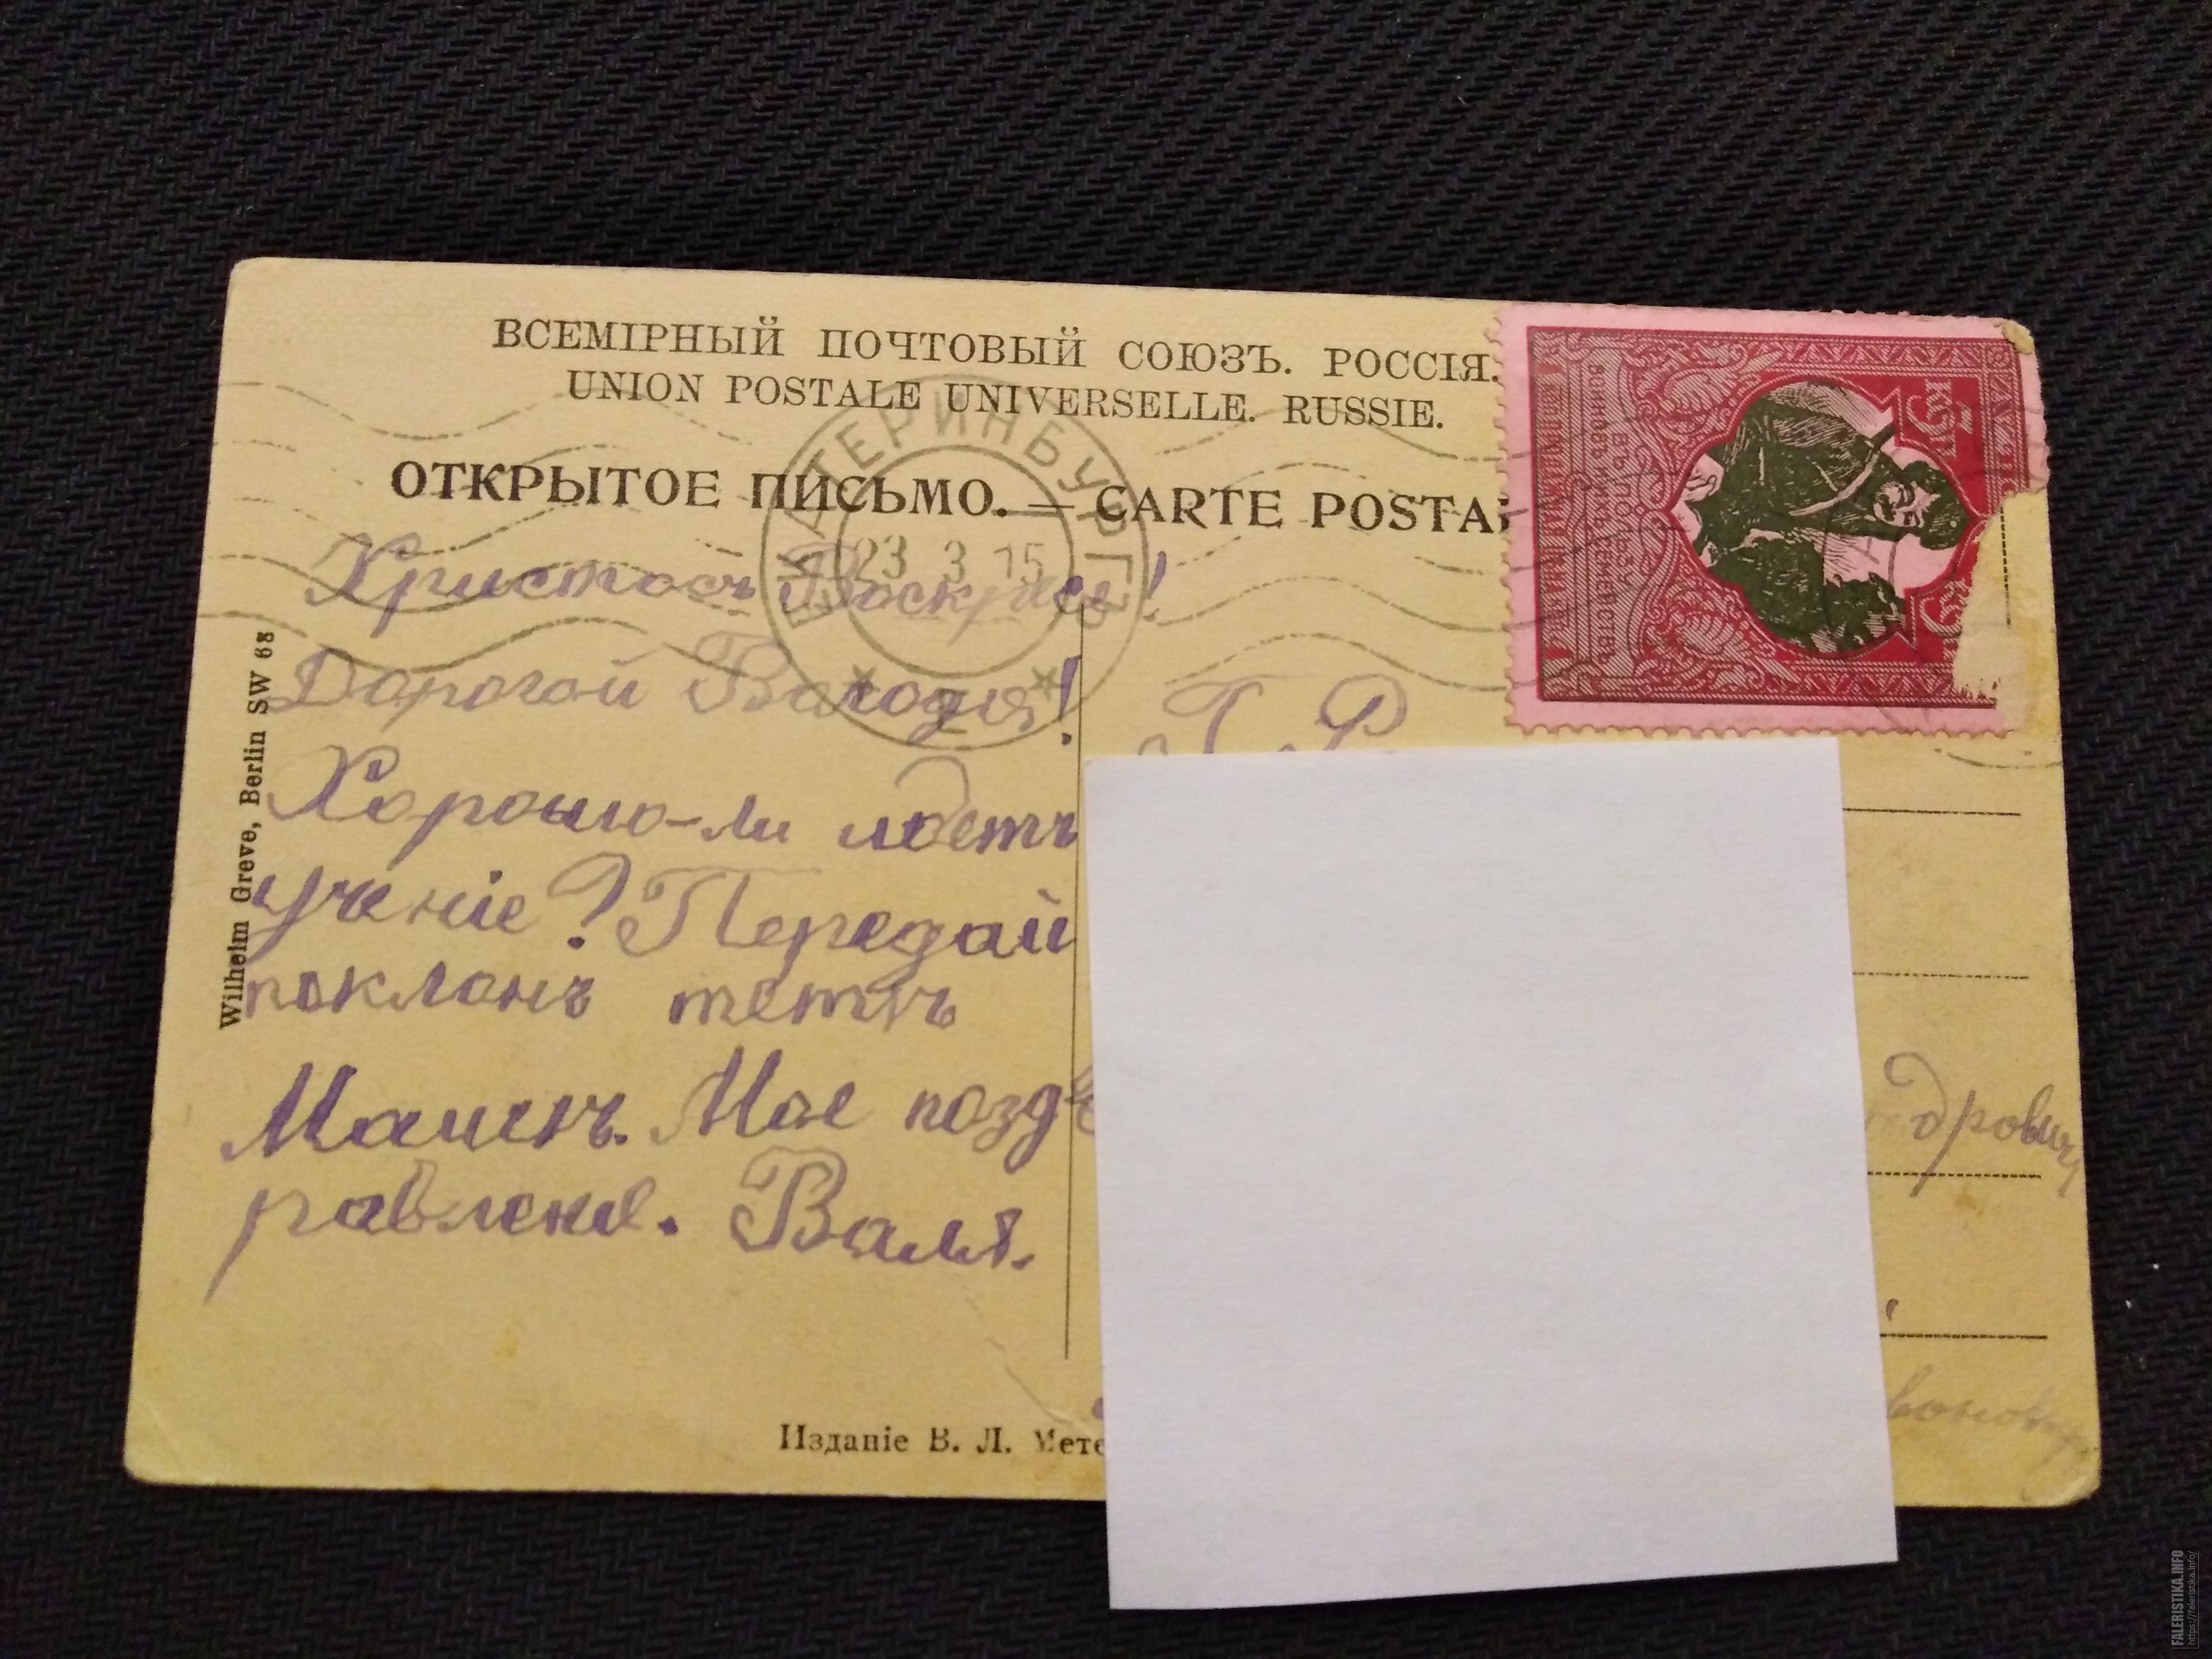 ВСЕМІРНЫЙ ПОЧТОВЫЙ СОЮЗЪ. РОССІЯ.
UNION POSTALE UNIVERSELLE. RUSSIE.
ОТКРЫТОЕ ПИСЬМО. — CARTE POSTA
ЕКАТЕРИНБУРГЪ
23 3 15
5 коп
ВОИНОВЪ И ИХЪ СЕМЕЙСТВЪ
Христосъ Воскресе!
Дорогой Володя!
Хорошо-ли идетъ
ученіе? Передай
поклонъ тетѣ
Мое позд
равленіе. Валя.
Г. Р
дровичу
Wilhelm Greve, Berlin SW 68
Изданіе В. Л. Мете
FALERISTIKA.INFO
https://faleristika.info/